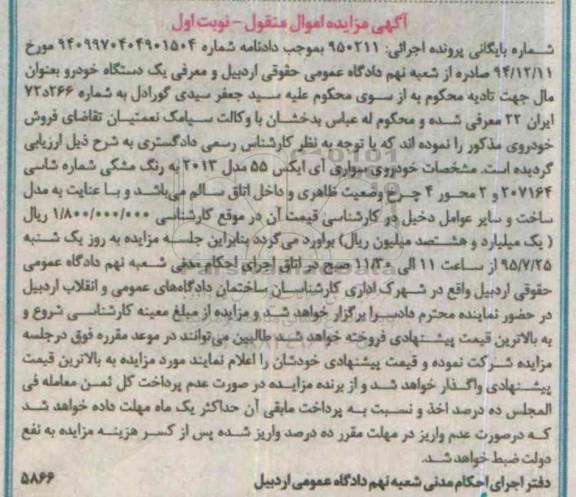 آگهی مزایده اموال منقول - نوبت اول
شماره بایگانی پرونده اجرائی: ۹۵۰۲۱۱ بموجب دادنامه شماره ۹۴۰۹۹۷۰۴۰۴۹۰۱۵۰۴ مورخ
۹۴/۱۲/۱۱ صادره از شعبه نهم دادگاه عمومی حقوقی اردبیل و معرفی یک دستگاه خودرو بعنوان
مال جهت تادیه محکوم به از سوی محکوم علیه سید جعفر سیدی گورادل به شماره ۲۶۶د۷۲
ایران ۲۲ معرفی شده و محکوم له عباس بدخشان با وکالت سیامک نعمتیان تقاضای فروش
خودروی مذکور را نموده اند که با توجه به نظر کارشناس رسمی دادگستری به شرح ذیل ارزیابی
گردیده است. مشخصات خودروی سواری ای ایکس ۵۵ مدل ۲۰۱۳ به رنگ مشکی شماره شاسی
۲۰۷۱۶۴ و ۲ محور ۴ چرخ وضعیت ظاهری و داخل اتاق سالم می‌باشد و با عنایت به مدل
ساخت و سایر عوامل دخیل در کارشناسی قیمت آن در موقع کارشناسی ۱/۸۰۰/۰۰۰/۰۰۰ ریال
( یک میلیارد و هشتصد میلیون ریال) براورد می‌گردد بنابراین جلسه مزایده به روز یک شنبه
۹۵/۷/۲۵ از ساعت ۱۱ الی ۱۱/۳۰ صبح در اتاق اجرای احکام مدنی شعبه نهم دادگاه عمومی
حقوقی اردبیل واقع در شهرک اداری کارشناسان ساختمان دادگاه‌های عمومی و انقلاب اردبیل
در حضور نماینده محترم دادسرا برگزار خواهد شد و مزایده از مبلغ معینه کارشناسی شروع و
به بالاترین قیمت پیشنهادی فروخته خواهد شد طالبین می‌توانند در موعد مقرره فوق درجلسه
مزایده شرکت نموده و قیمت پیشنهادی خودشان را اعلام نمایند مورد مزایده به بالاترین قیمت
پیشنهادی واگذار خواهد شد و از برنده مزایده در صورت عدم پرداخت کل ثمن معامله فی
المجلس ده درصد اخذ و نسبت به پرداخت مابقی آن حداکثر یک ماه مهلت داده خواهد شد
که درصورت عدم واریز در مهلت مقرر ده درصد واریز شده پس از کسر هزینه مزایده به نفع
دولت ضبط خواهد شد.
دفتر اجرای احکام مدنی شعبه نهم دادگاه عمومی اردبیل
۵۸۶۶